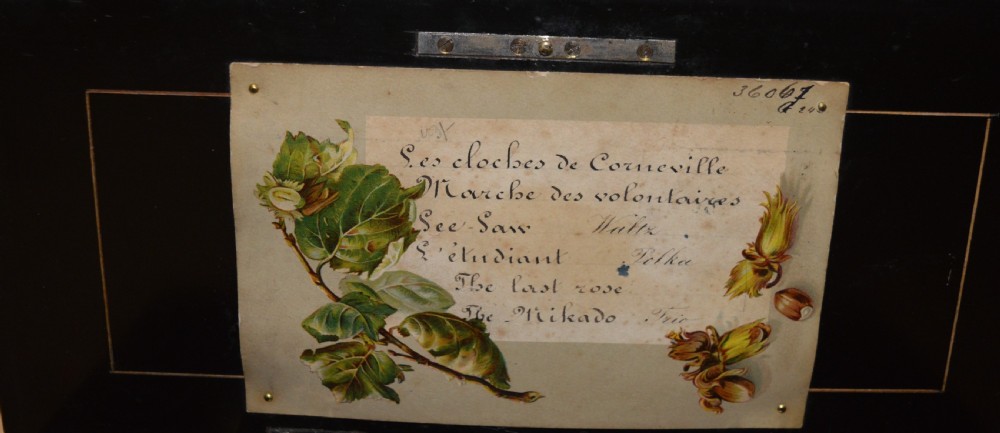 36067
Les cloches de Corneville
Marche des volontaires
See-Saw Waltz
L'étudiant Polka
The last rose
The Mikado Trio